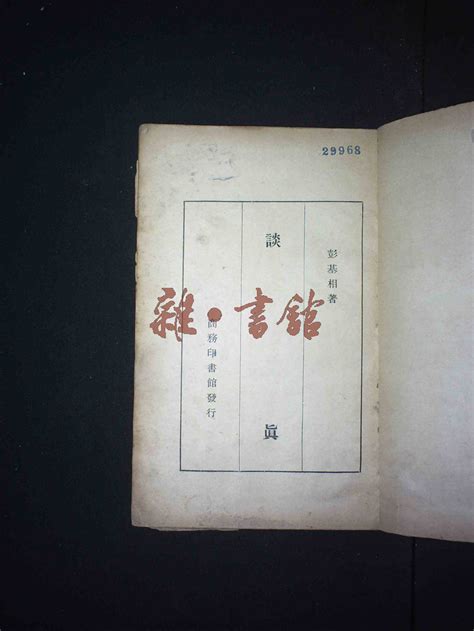 29968
彭基相著
談
眞
商務印書館發行
雜·書館